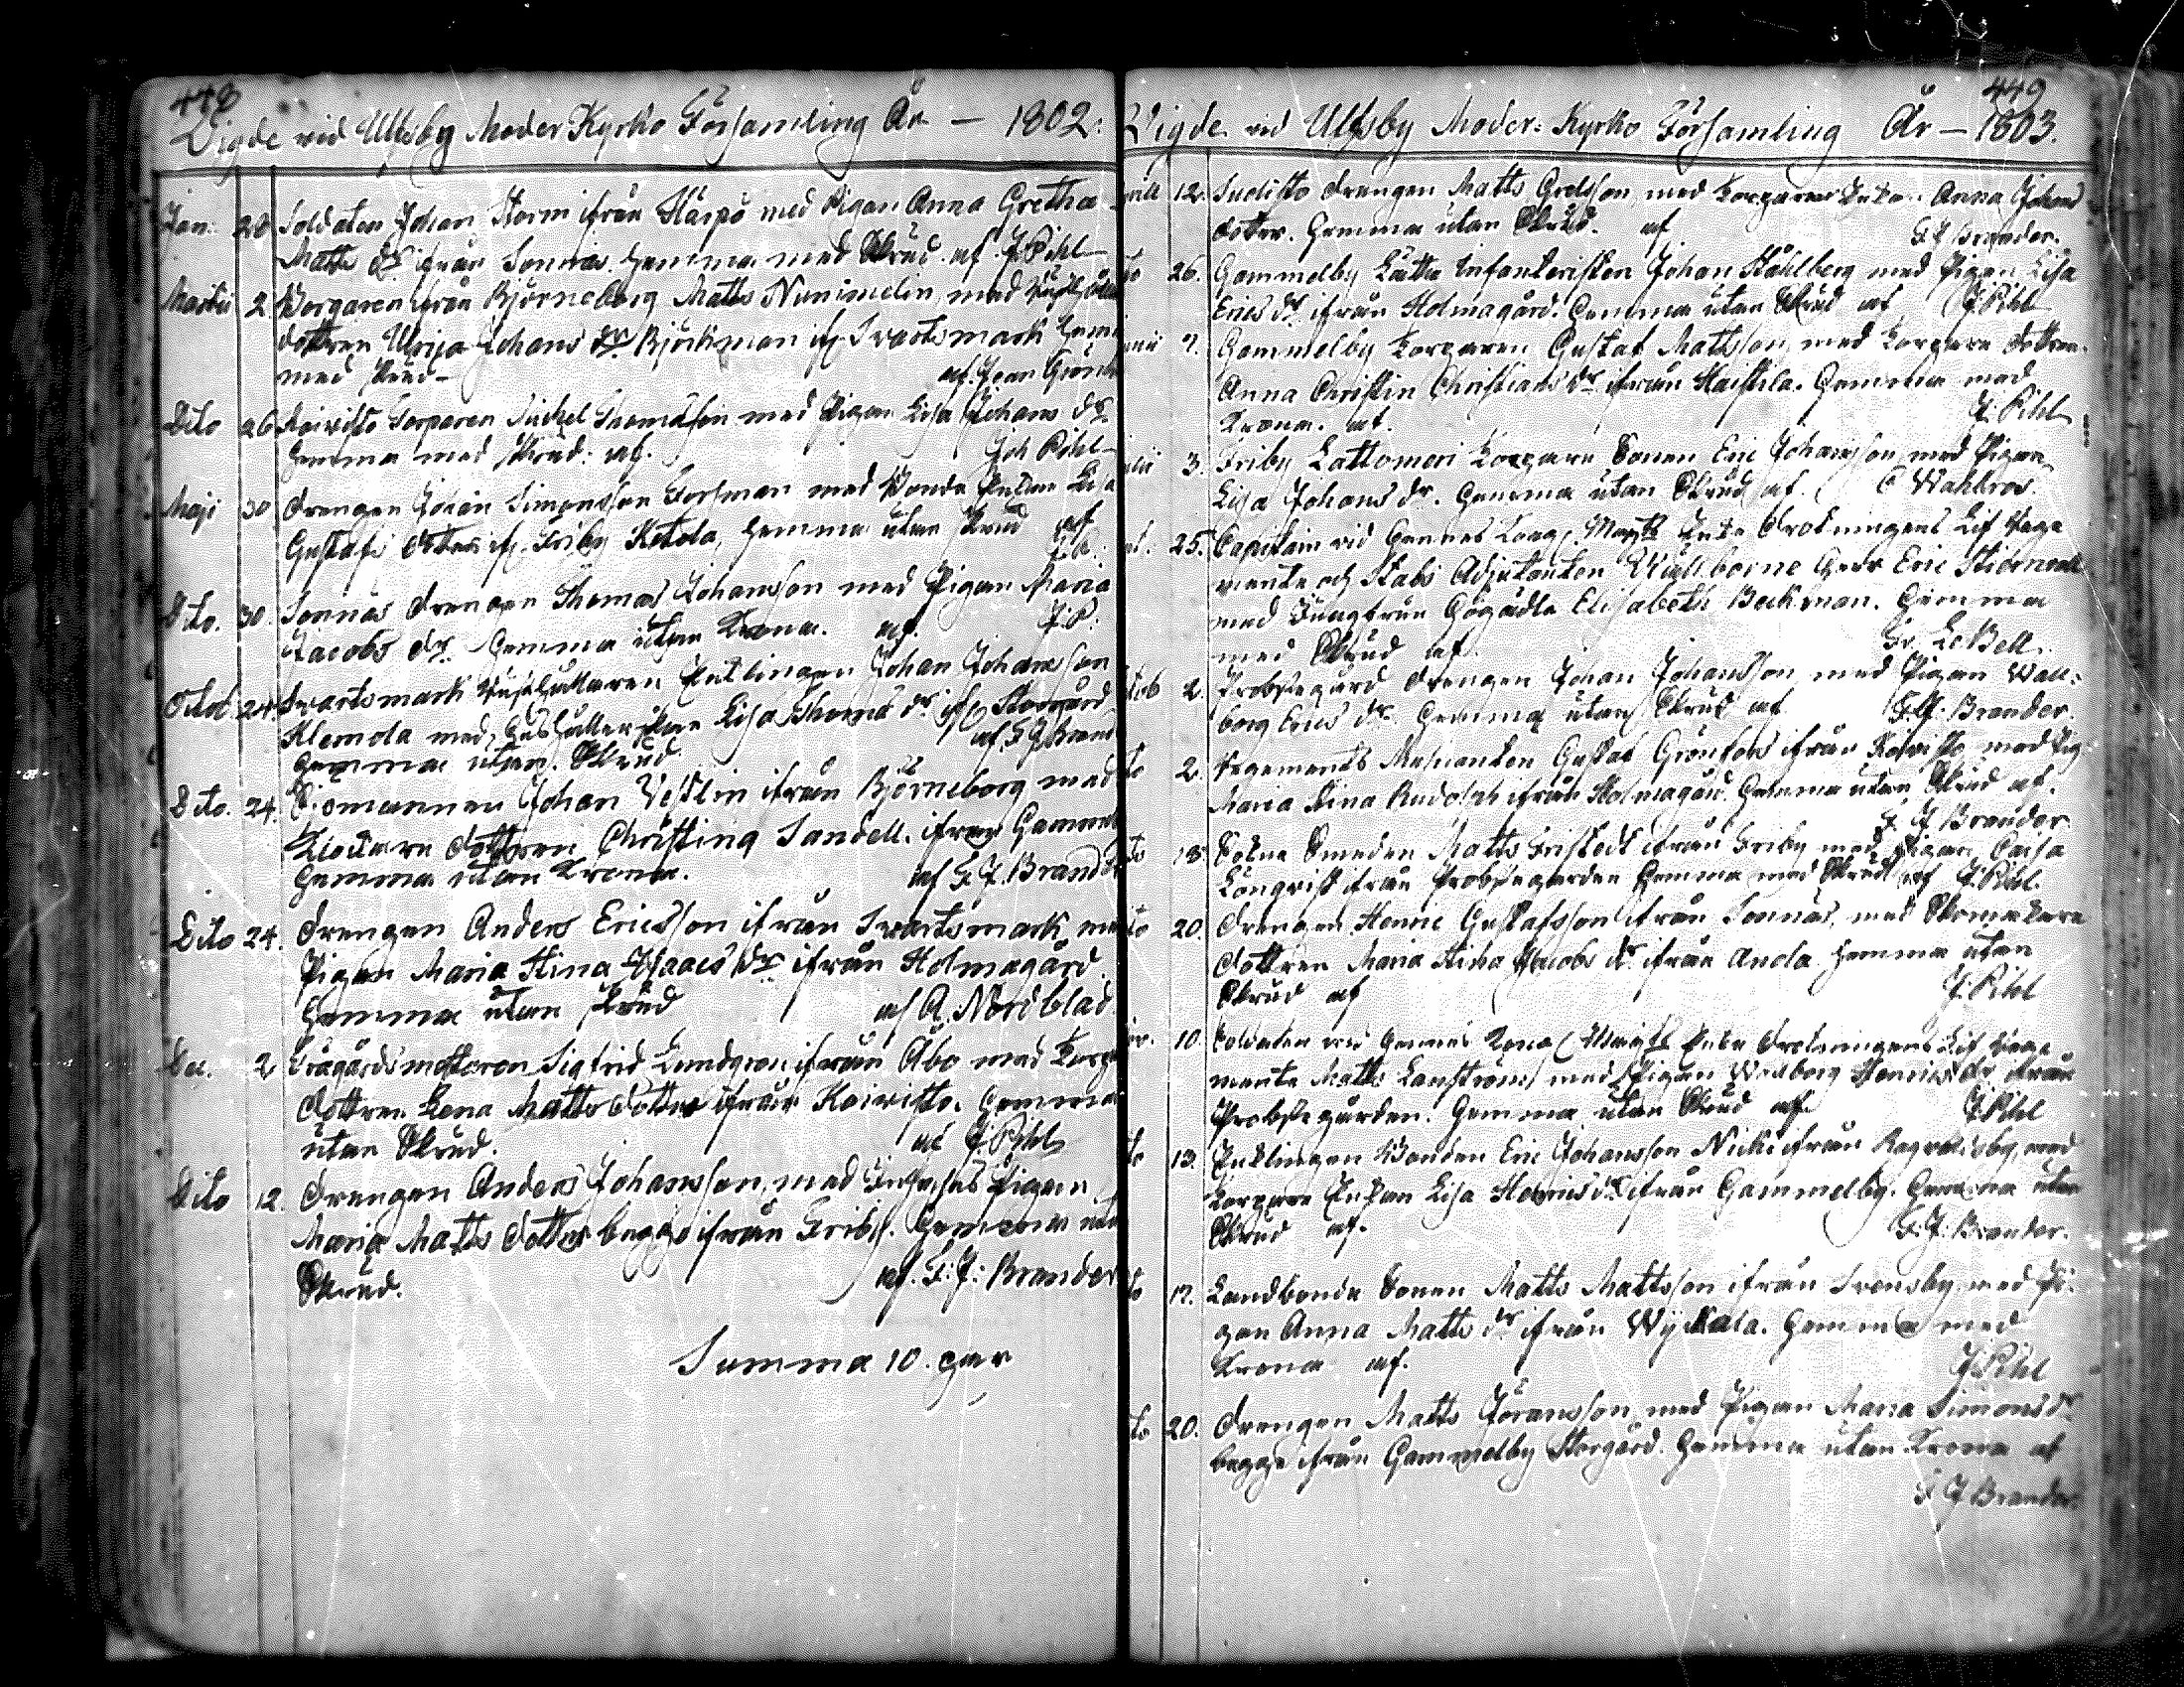 448
Vigde vid Ulfsby Moder Kyrko Församling År — 1802.
Jan: 28 Soldaten Johan Storm ifrån Härpö med Pigan Anna Gretha
Matts dr ifrån Sonnäs. Hemma med Skrud. af J. Pihl
Martii 2 Borgaren ifrån Björneborg Matts Nummelin, med
dottren Ulrica Johans dr Björkman if. Svartsmark hemma
med skrud — af. Joan Grönh
Dito 26 Koivisto Torparen Michel Thomasson med Pigan Lisa Johans dr
hemma med skrud: af. Joh Pihl
Maji 30 Drengen Johan Simonsson Forsman med Bonde Enkan Lisa
Gustafs dotter if. Friby Ketola, hemma utan skrud af
J. P.:
Dito. 30. Sonnäs drengen Thomas Johansson med Pigan Maria
Jacobs dr. Hemma utan Krona. af. J. P.:
Octob. 24. Svartsmark Enklingen Johan Johansson
Klemola med Lisa Thomas dr if. Storgård
hemma utan Skrud. af F J Brand
Dito. 24. Sjömannen Johan Vestlin ifrån Björneborg med
Klockare dottren Christina Sandell. ifrån Gammel
Hemma utan Krona. af F. J. Brand
Dito 24. Drengen Anders Ericsson ifrån Svartsmark me
Pigan Maria Stina Isaacs dr ifrån Holmagård.
hemma utan skrud af A. Nordblad
Dec. 2 Trägårdsmästaren Sigfrid Lundgren ifrån Åbo med
dottren Lena Matts dotter ifrån Koivisto. Hemma
utan Skrud. af J. Pihl
Dito 12. Drengen Anders Johansson, med Inhyses Pigan
Maria Matts dotter begge ifrån Friby. Hemma
Skrud. af. F: J: Brander
Summa 10. par
449
Vigde vid Ulfsby Moder-Kyrko Församling År — 1803.
12. drengen Matts Grelsson, med Enka Anna Johans
dotter. Hemma utan Skrud. af F J Brander.
26. Gammelby Lätta Infanteristen Johan Ståhlberg med Pigan Lisa
Erics dr ifrån Holmagård. Hemma utan Skrud af J. Pihl
7. Gammelby Torparen Gustaf Mattsson, med Torpare dottren
Anna Christin Christians dr ifrån Haistila. Hemma med
Krona. af. J. Pihl
3. Friby Lattomeri Torpare Sonen Eric Johansson med Pigan
Lisa Johans dr. Hemma utan Skrud af. C Wahlroos.
25. Capitain vid Hennes Kongl. Majts Enke Drottningens Lif Rege
mente och Stabs Adjutanten Wälborne Herr Eric Stiernvall
med Jungfrun Högädla Elisabeth Beckman. Hemma
med Skrud af. Fr. LeBell.
2. Probstegård drengen Johan Johansson med Pigan Wall-
borg Erics dr. Hemma utan Skrud af F. J: Brander.
2. Regements Gustaf Grönfors ifrån Koivisto med Pig.
Maria Stina Rudolph ifrån Holmagård. Hemma utan Skrud af.
F J Brander
18. Sockne Smeden Matts Fristedt ifrån Friby med Pigan Caisa
Löngvist ifrån Probstegården Hemma med Skrud af J: Pihl.
20. Drengen Henric Gustafsson ifrån Sonnäs, med Skomakare
dottren Maria Stina Jacobs dr. ifrån Anola. Hemma utan
Skrud af J. Pihl
10. Soldaten vid Hennes Kongl Majts Enke Drottningens Lif Rege
mente Matts Lanström, med Pigan Walborg Henrics dr från
Probstegården. Hemma utan Skrud af. J. Pihl
13. Enklingen Bonden Eric Johansson Nicki ifrån Ragvaldsby, med
Torpare Enkan Lisa Henrics dr ifrån Gammelby. Hemma utan
Skrud af. F. J. Brander.
17. Landbonde Sonen Matts Mattsson ifrån Svensby med Pi-
gan Anna Matts dr ifrån Wyckala. Hemma med
Krona af. J. Pihl
20. Drengen Matts Göransson, med Pigan Maria Simons dr
begge ifrån Gammelby Storgård. Hemma utan Krona af
F J Brander.